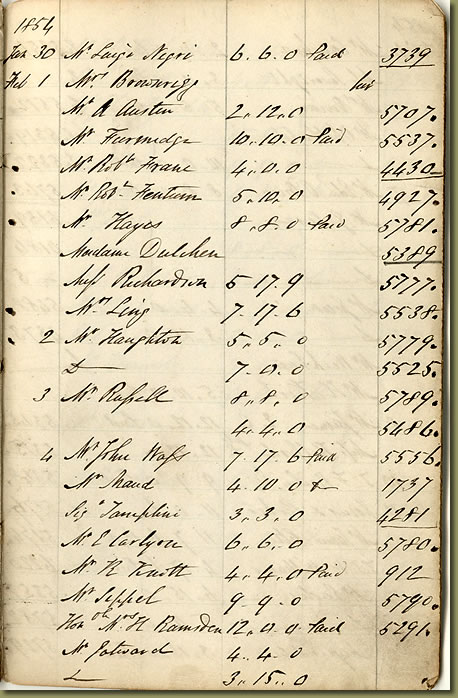 1854
Jan 30 Mr Luigi Negri 6. 6. 0 Paid 3739
Feb 1 Mrs Brownrigg
Mr A Austin 2. 12. 0 5707.
Mr Furmedge 10. 10. 0 Paid 5537.
Mr Robt 4. 0. 0 4430
Mr Robt Fentum 5. 10. 0 4927.
Mr Hayes 8. 8. 0 Paid 5781.
Madame Dulcken 5389
Miss Richardson 5 17. 9 5777.
Mrs Ling 7. 17. 6 5538.
2 Mr Haughton 5. 5. 0 5779.
7. 0. 0 5525.
3 Mr Russell 8. 8. 0 5789.
4. 4. 0 5486.
4 Mr John Wass 7. 17. 6 Paid 5556.
Mr Maud 4. 10 0 1737
Sigr Templini 3. 3. 0 4281
Mr E Carlyon 6. 6. 0 5780.
Mr R Knott 4. 4. 0 Paid 912
Mr Seppel 9. 9. 0 5790.
Honble Mrs H Ramsden 12. 0. 0 Paid 5291.
Mr Jotward 4. 4. 0
3. 15. 0